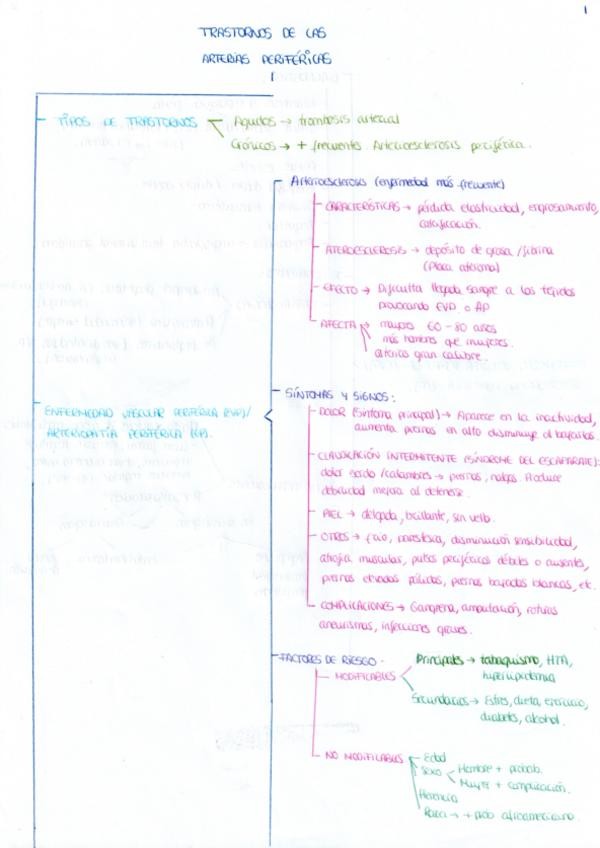 1
TRASTORNOS DE LAS
ARTERIAS PERIFÉRICAS
TIPOS DE TRASTORNOS
Agudos → trombosis arterial
Crónicos → + frecuentes. Arterioesclerosis periférica.
Arterioesclerosis (enfermedad más frecuente)
CARACTERÍSTICAS → pérdida elasticidad, engrosamiento,
calcificación.
ATEROESCLEROSIS → depósito de grasa /fibrina
(Placa ateroma)
EFECTO → Dificulta llegada sangre a los tejidos
provocando EVP o AP
AFECTA → mayores 60-80 años
más hombres que mujeres.
arterias gran calibre.
ENFERMEDAD VASCULAR PERIFÉRICA (EVP)/
ARTERIOPATÍA PERIFÉRICA (AP).
SÍNTOMAS Y SIGNOS:
DOLOR (Síntoma principal) → Aparece en la inactividad,
aumenta piernas en alto disminuye al bajarlas.
CLAUDICACIÓN INTERMITENTE (SÍNDROME DEL ESCAPARATE):
dolor sordo /calambres → piernas, nalgas. Produce
debilidad mejora al detenerse.
PIEL → delgada, brillante, sin vello.
OTROS → frío, parestesia, disminución sensibilidad,
atrofia muscular, pulsos periféricos débiles o ausentes,
piernas elevadas pálidas, piernas bajadas blancas, etc.
COMPLICACIONES → Gangrena, amputación, roturas
aneurismas, infecciones graves.
FACTORES DE RIESGO.
MODIFICABLES
Principales → tabaquismo, HTA,
hiperlipidemia
Secundarios → Estrés, dieta, ejercicio,
diabetes, alcohol.
NO MODIFICABLES
Edad
Sexo
Hombre + probab.
Mujer + complicación.
Herencia
Raza → + prob afroamericano.